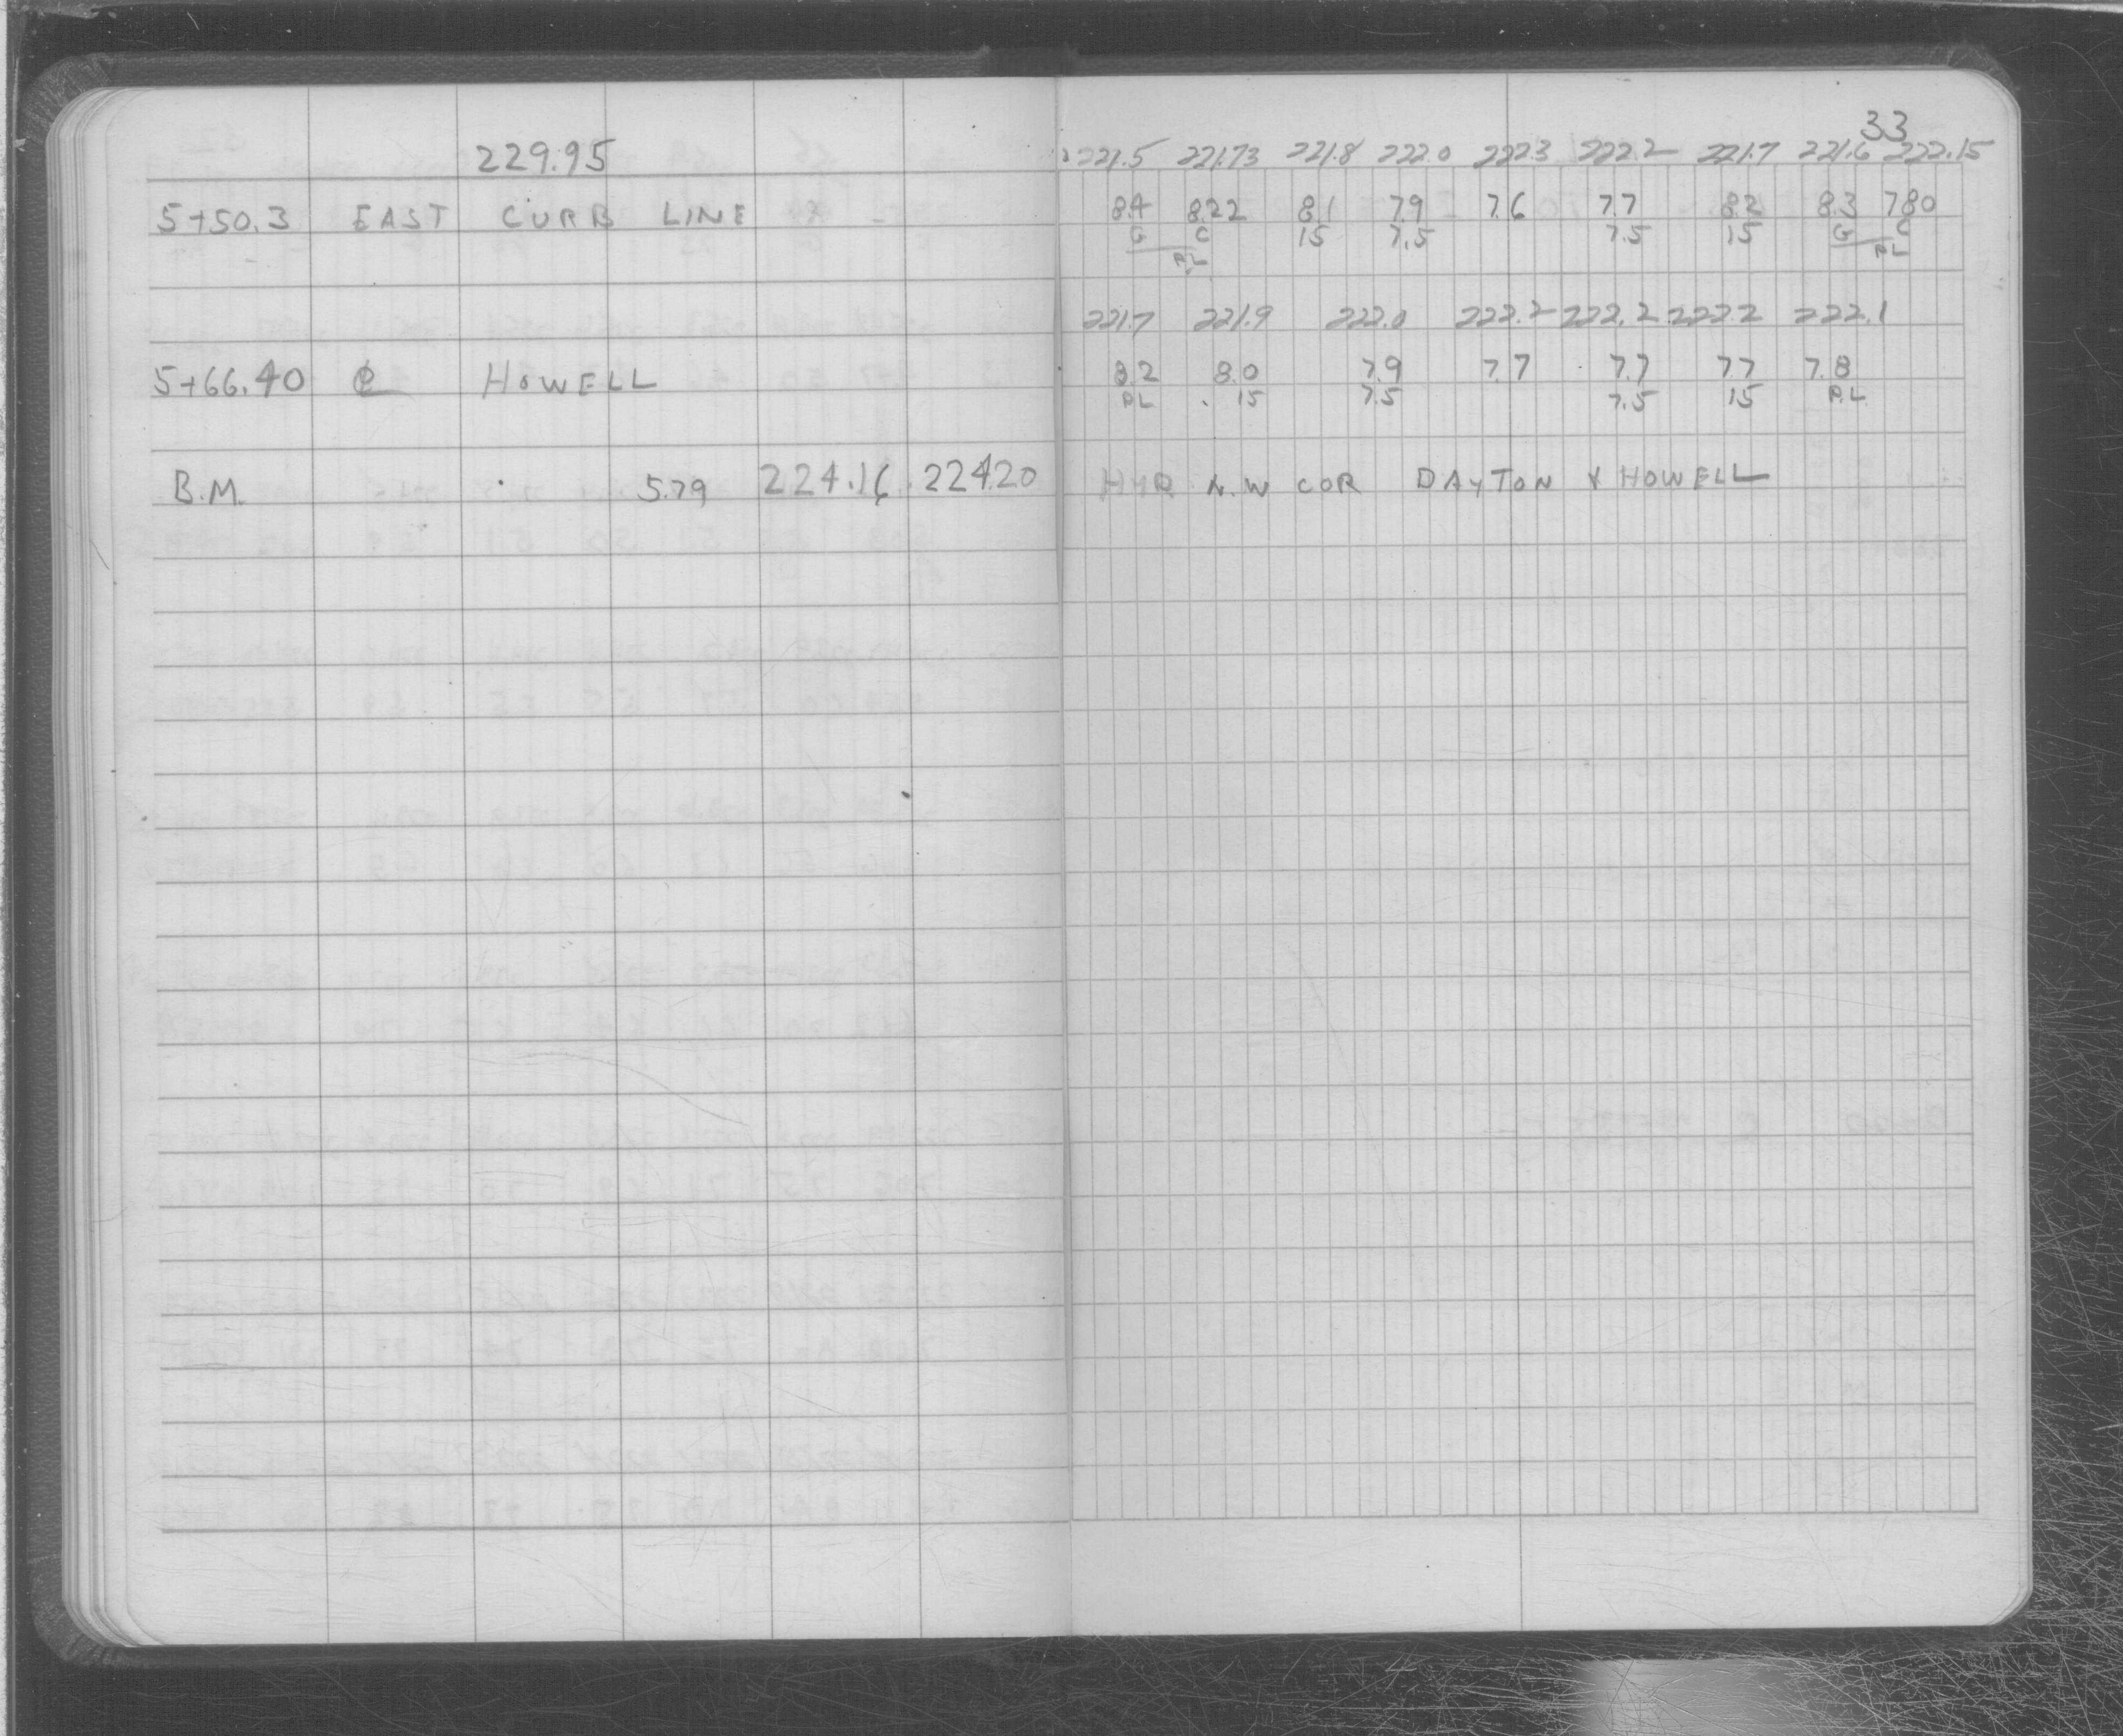 33
229.95 221.5 221.73 221.8 222.0 222.3 222.2 221.7 221.6 222.15
5+50.3 EAST CURB LINE 8.4 8.22 8.1 7.9 7.6 7.7 8.2 8.3 7.80
G C 15 7.5 7.5 15 G C
PL PL
221.7 221.9 222.0 222.2 222.2 222.2 222.1
5+66.40 ℄ HOWELL 8.2 8.0 7.9 7.7 7.7 7.7 7.8
PL 15 7.5 7.5 15 P.L.
B.M. 5.79 224.16 224.20 HYR N.W COR DAYTON & HOWELL